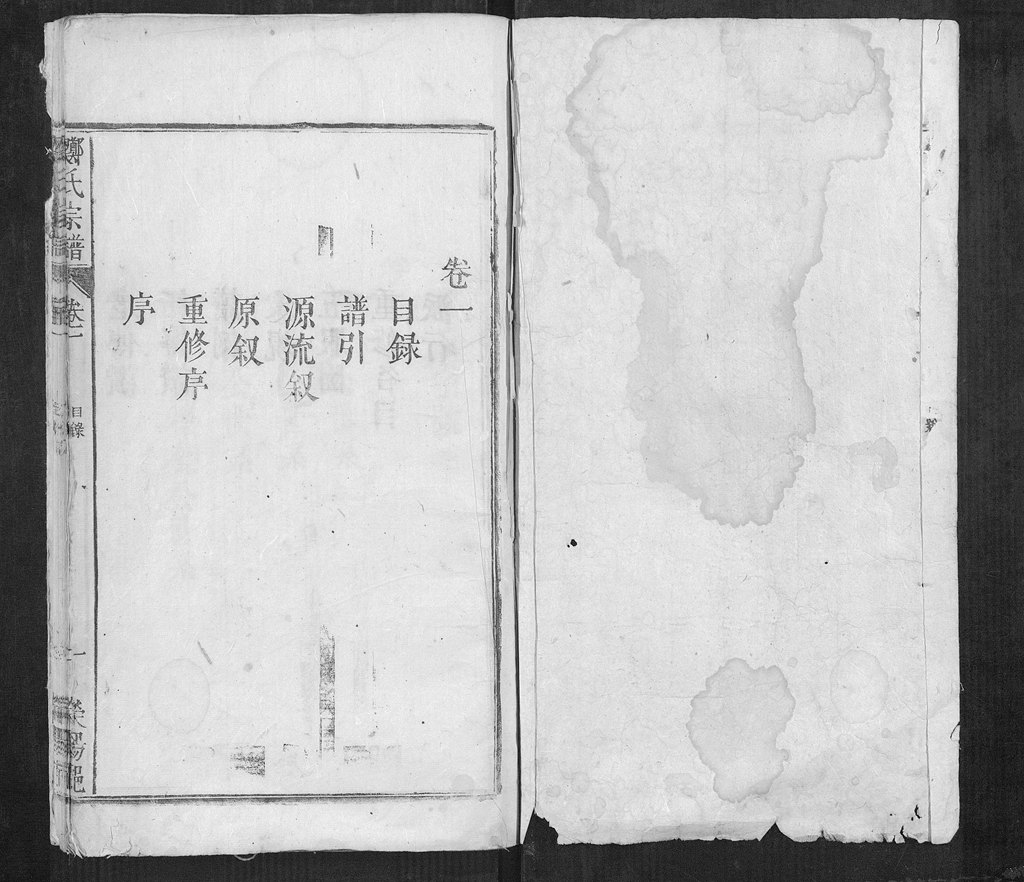 卷一
目録
譜引
源流叙
原叙
重修序
序
鄭氏宗譜
卷一
目録
一